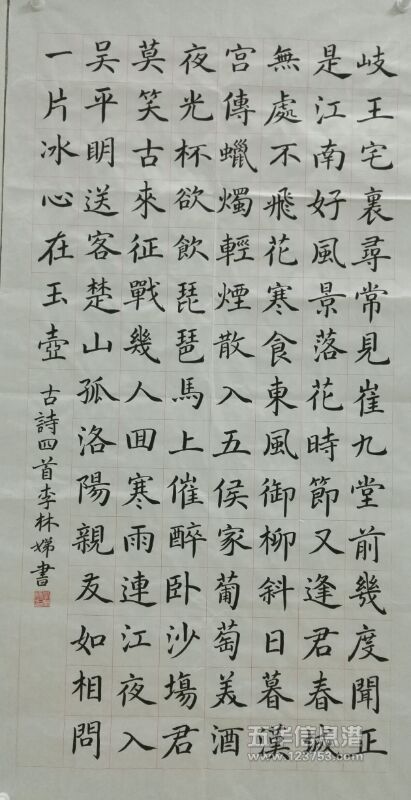 岐王宅裏尋常見崔九堂前幾度聞正
是江南好風景落花時節又逢君春城
無處不飛花寒食東風御柳斜日暮漢
宮傳蠟燭輕煙散入五侯家葡萄美酒
夜光杯欲飲琵琶馬上催醉卧沙塲君
莫笑古來征戰幾人囬寒雨連江夜入
吳平明送客楚山孤洛陽親友如相問
一片冰心在玉壺
古詩四首李林娣書
五华信息港
www.123753.com